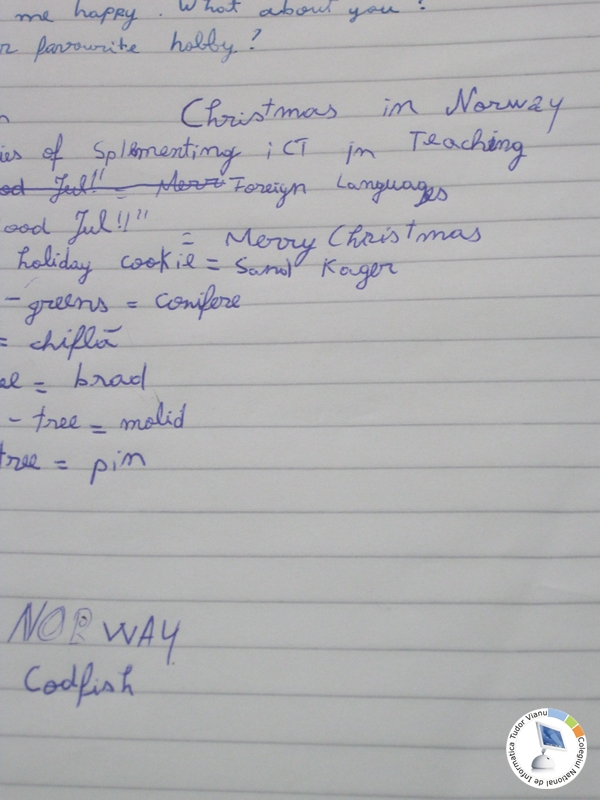 me happy. What about you?
favourite hobby?
Christmas in Norway
ies of Splementing iCT in Teaching
ood Jul!" = Merr Foreign Languages
ood Jul!!"
= Merry Christmas
holiday cookie = Sand Kager
- greens = conifere
= chiflă
ee = brad
- tree = molid
tree = pin
NORWAY
Codfish
Colegiul National de Informatica Tudor Vianu